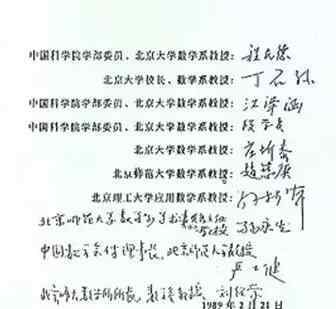 中国科学院学部委员、北京大学数学系教授：程民德
北京大学校长、数学系教授：丁石孙
中国科学院学部委员、北京大学数学系教授：江泽涵
中国科学院学部委员、北京大学数学系教授：段学复
北京大学数学系教授：庄圻泰
北京师范大学数学系教授：赵慈庚
北京理工大学应用数学系教授：
北京师范大学数学系学术委员会主任 教授 孙永生
中国教育学会理事长、北京师范大学教授
严士健
北京师大数学所所长、数学系教授 刘绍学
1989年2月21日